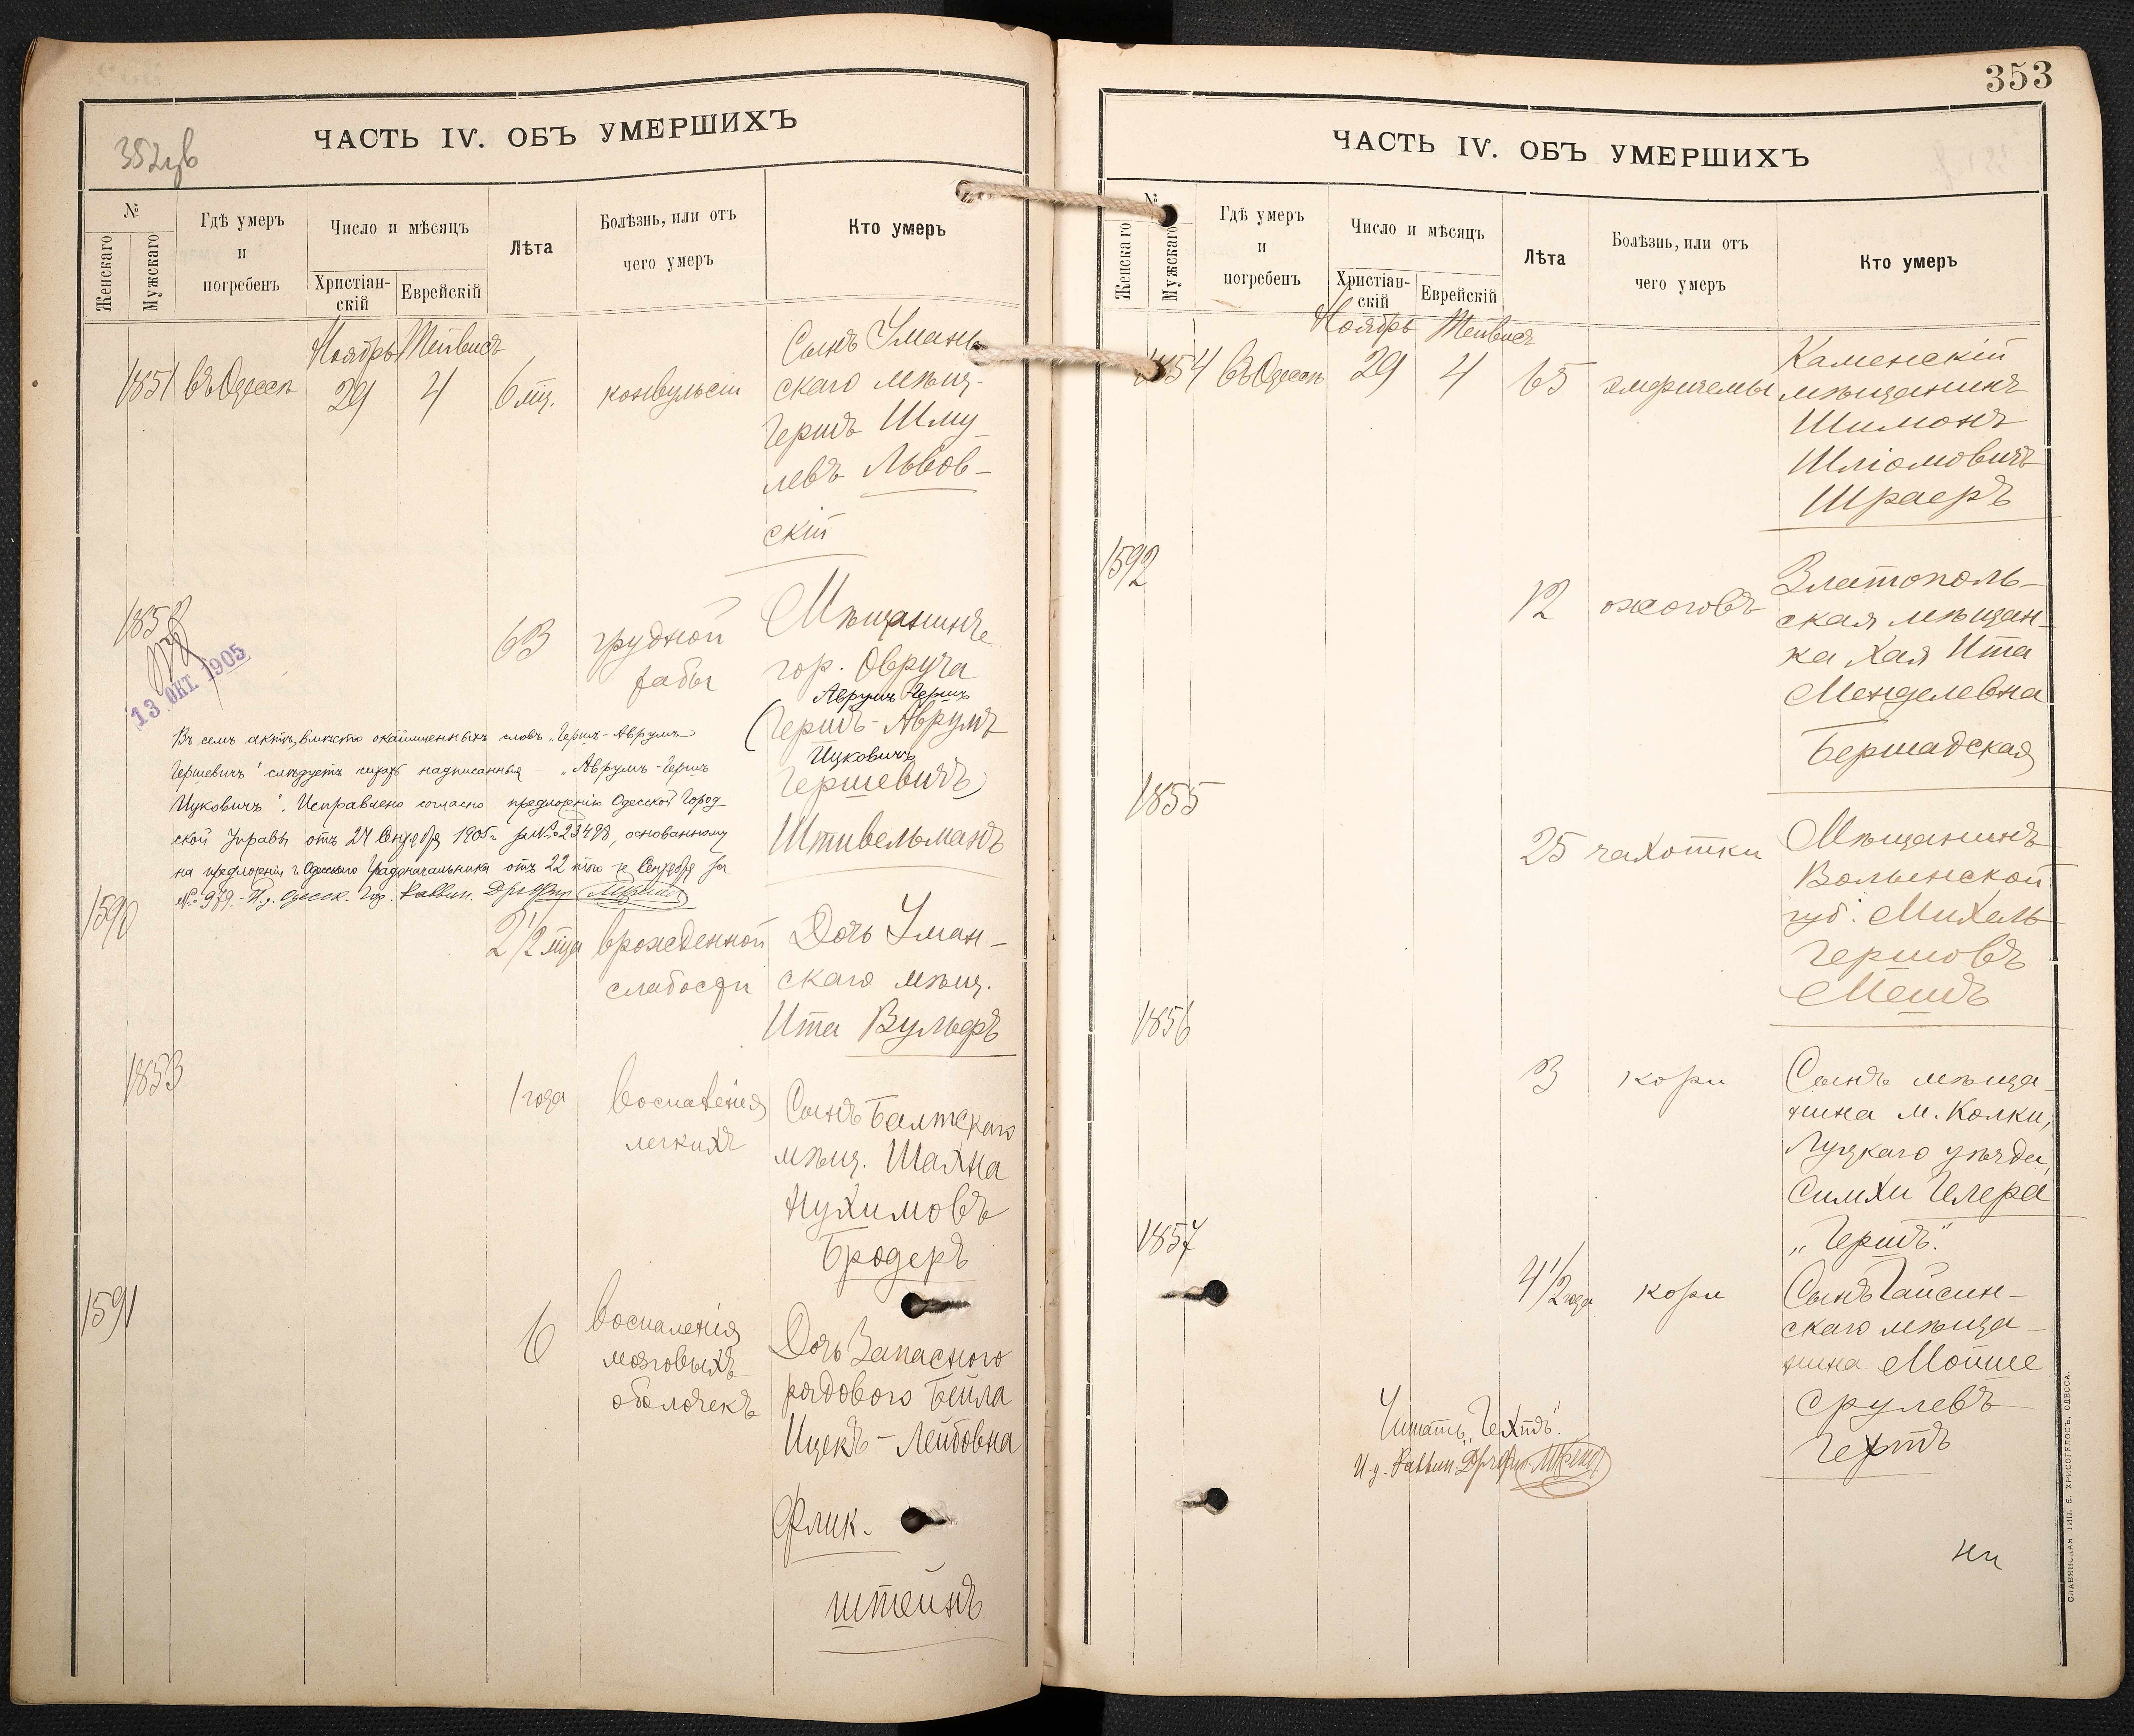 352зв
ЧАСТЬ IV. ОБЪ УМЕРШИХЪ
№
Женскаго
Мужскаго
Гдѣ умеръ
и
погребенъ
Число и мѣсяцъ
Христіан-
скій
Еврейскій
Лѣта
Болѣзнь, или отъ
чего умеръ
Кто умеръ
Ноябрь Тейвисъ
1851 въ Одессѣ 29 4 6 мц. конвульсіи
Сынъ Умань
скаго мѣщ.
Гершъ Шму
левъ Львов-
скій
1852
63 грудной
жабы
Мѣщанинъ
гор. Овруча
Аврумъ Гершъ
(Гершъ-Аврумъ
Ицковичъ
Гершевичъ)
Штивельманъ
13 ОКТ. 1905
Въ семъ актѣ, вмѣсто окаймленныхъ словъ „Гершъ-Аврумъ
Гершевичъ" слѣдуетъ читать надписанныя - „Аврумъ-Гершъ
Ицковичъ". Исправлено согласно предложенію Одесской Город
ской Управы отъ 24 Сентября 1905 г. за № 23498, основанному
на предложеніи г. Одесскаго Градоначальника отъ 22 того же Сентября за
№ 979. - И. д. Одесск. Гор. Раввин.
1590
2 1/2 мца врожденной
слабости
Дочь Уман-
скаго мѣщ.
Ита Вульфъ
1853
1 года воспаленія
легкихъ
Сынъ Балтскаго
мѣщ. Шахна
Нухимовъ
Бродеръ
1591
6 воспаленія
мозговыхъ
оболочекъ
Дочь Запасного
рядового Бейла
Ицекъ-Лейбовна
Флик-
штейнъ
353
ЧАСТЬ IV. ОБЪ УМЕРШИХЪ
№
Женскаго
Мужскаго
Гдѣ умеръ
и
погребенъ
Число и мѣсяцъ
Христіан-
скій
Еврейскій
Лѣта
Болѣзнь, или отъ
чего умеръ
Кто умеръ
Ноябрь Тейвисъ
1854 въ Одессѣ 29 4 65 эмфиземы
Каменскій
мѣщанинъ
Шимонъ
Шліомовичъ
Шраеръ
1592
12 ожоговъ
Златополь-
ская мѣщан-
ка Хая Ита
Менделевна
Бершадская
1855
25 чахотки
Мѣщанинъ
Волынской
губ. Михель
Гершовъ
Мешъ
1856
3 кори
Сынъ мѣща-
нина м. Колки,
Луцкаго уѣзда,
Симхи Гелера
„Гершъ".
1857
4 1/2 года кори
Сынъ Гайсин-
скаго мѣща-
нина Мойше
Срулевъ
Гехтъ
Читать „Гехтъ".
И. д. Раввин.
СЛАВЯНСКАЯ ТИП. Е. ХРИСОГЕЛОСЪ, ОДЕССА.